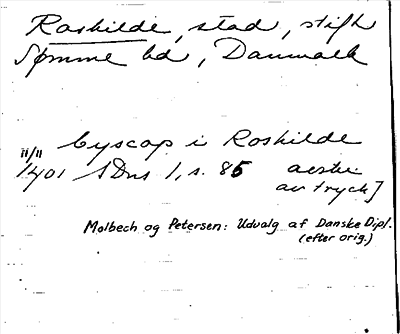 Roskilde, stad, stift
Sømme hd, Danmark
11/11 byscop i Roskilde
1401 SDns 1, s. 85 aestu
av tryck]
Molbech og Petersen: Udvalg af Danske Dipl.
(efter orig.)